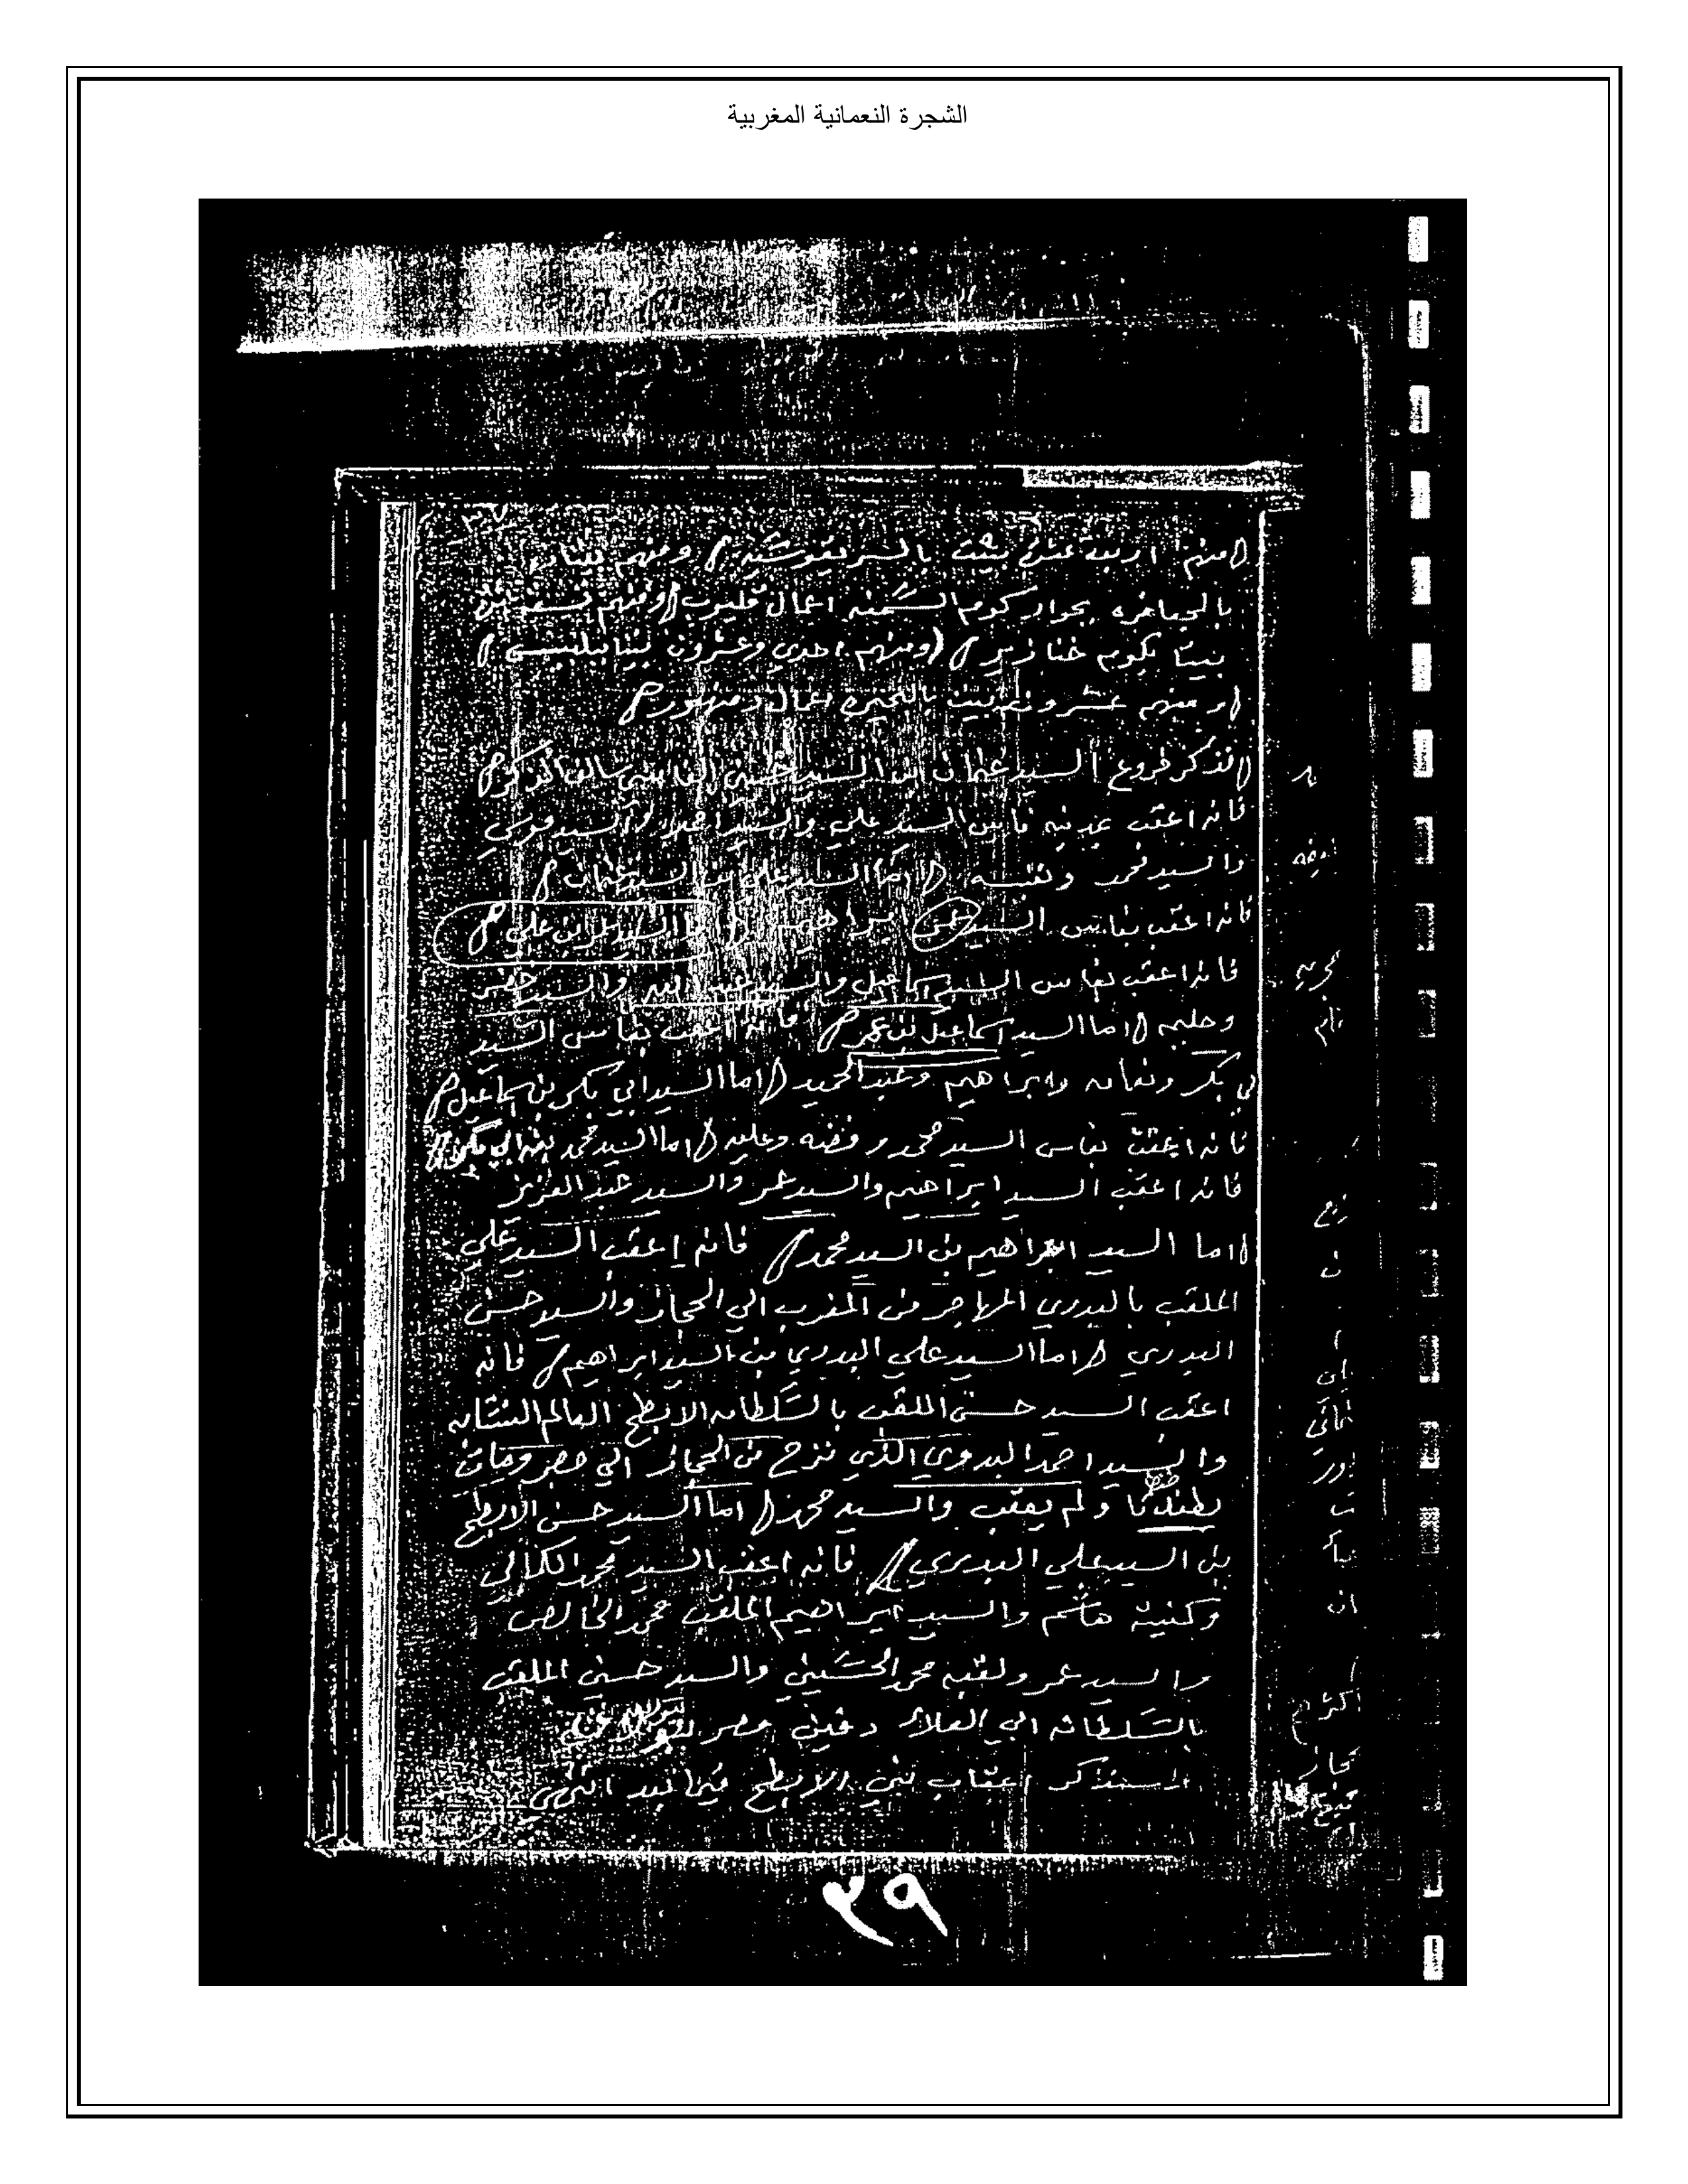 الشجرة النعمانية المغربية
٣٧
(منهم اربعة عشر بيت ومنهم
بالجعافره بجوار كوم السمنه اعمال قليوب (ومنهم
بيتا بكوم خنازير) (ومنهم احدي وعشرون بيتا ببلبيس)
(ومنهم عشرون بيت بالبحيره اعمال دمنهور)
السيد عثمان ابن السيد حسين الفاسي سالف الذكر)
فانه اعقب بمدينه فاس السيد علي والسيد احمد والسيد موسي
والسيد محمد ونفيسه (اما السيد علي بن السيد عثمان)
فانه اعقب بفاس السيد عمر ابراهيم (اما السيد عمر بن علي)
فانه اعقب بفاس السيد اسماعيل والسيد عبد الله والسيد خضر
وحليمه (اما السيد اسماعيل بن عمر) فانه اعقب بفاس السيد
ابي بكر ونعمان وابراهيم وعبد الحميد (اما السيد ابي بكر بن اسماعيل)
فانه اعقب بفاس السيد محمد وفضه وعليه (اما السيد محمد بن ابي بكر)
فانه اعقب السيد ابراهيم والسيد عمر والسيد عبد العزيز
(اما السيد ابراهيم بن السيد محمد) فانه اعقب السيد علي
الملقب بالبدري المهاجر من المغرب الي الحجاز والسيد حسن
البدري (اما السيد علي البدري بن السيد ابراهيم) فانه
اعقب السيد حسن الملقب بالسلطان الابطح العالم النسابه
والسيد احمد البدوي الذي نزح من الحجاز الي مصر ومات
بطندتا ولم يعقب والسيد محمد (اما السيد حسن الابطح
بن السيد علي البدري) فانه اعقب السيد محمد الكمالي
وكنيته هاشم والسيد ابراهيم الملقب محمد الخالص
والسيد عمر ولقبه محمد الحسيني والسيد حسن الملقب
بالسلطان ابي العلا دفين مصر
سنذكر اعقاب بني الابطح فيما بعد انتهي
٣٩